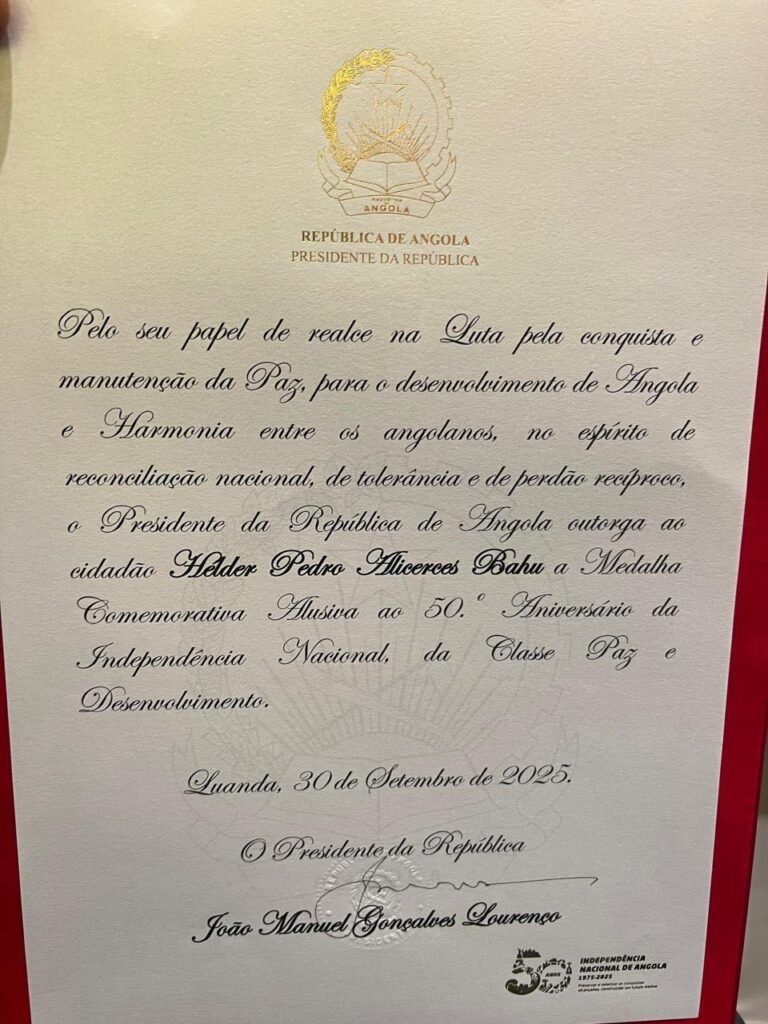 ANGOLA
REPÚBLICA DE ANGOLA
PRESIDENTE DA REPÚBLICA
Pelo seu papel de realce na Luta pela conquista e
manutenção da Paz, para o desenvolvimento de Angola
e Harmonia entre os angolanos, no espírito de
reconciliação nacional, de tolerância e de perdão recíproco,
o Presidente da República de Angola outorga ao
cidadão Hélder Pedro Alicerces Bahu a Medalha
Comemorativa Alusiva ao 50.º Aniversário da
Independência Nacional, da Classe Paz e
Desenvolvimento.
Luanda, 30 de Setembro de 2025.
O Presidente da República
João Manuel Gonçalves Lourenço
50 ANOS
INDEPENDÊNCIA
NACIONAL DE ANGOLA
1975-2025
Preservar e valorizar as conquistas
alcançadas, construindo um futuro melhor